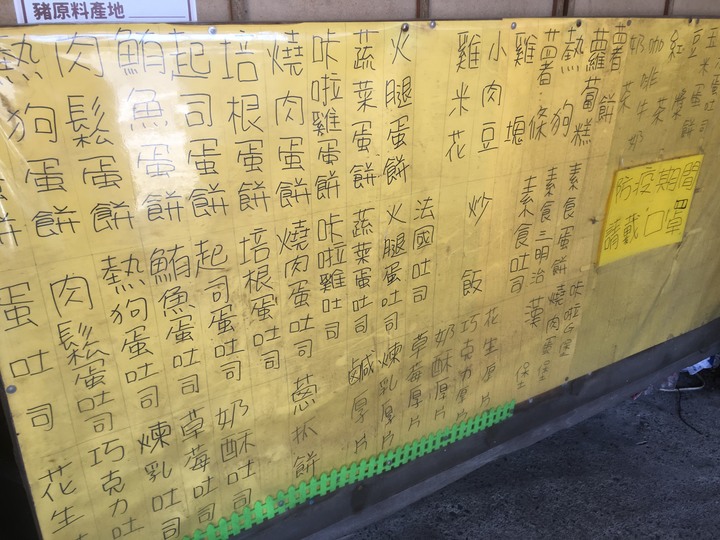 豬原料產地
咖啡牛奶
奶茶
薯餅
蘿蔔糕
熱狗
薯條
雞塊
小肉豆
雞米花
火腿蛋餅
蔬菜蛋餅
咔啦雞蛋餅
燒肉蛋餅
培根蛋餅
起司蛋餅
鮪魚蛋餅
肉鬆蛋餅
熱狗蛋餅
防疫期間
請戴口罩
素食蛋餅
素食三明治
素食吐司
燒肉蛋堡
漢堡
炒飯
法國吐司
火腿蛋吐司
蔬菜蛋吐司
咔啦雞吐司
燒肉蛋吐司
培根蛋吐司
起司蛋吐司
鮪魚蛋吐司
熱狗蛋吐司
肉鬆蛋吐司
蛋吐司
花生厚片
巧克力厚片
奶酥厚片
草莓厚片
煉乳厚片
鹹厚片
蔥抓餅
奶酥吐司
草莓吐司
煉乳吐司
巧克力吐
花生